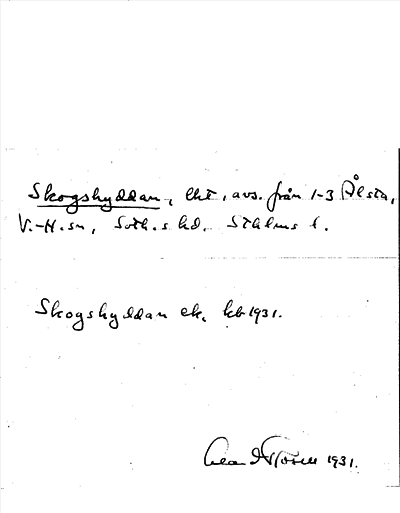 Skogshyddan, lht, avs. från 1-3 Ålsta,
V.-H. sn, Soth. s hd. Sthlms l.
Skogshyddan ek. kb 1931.
1931.